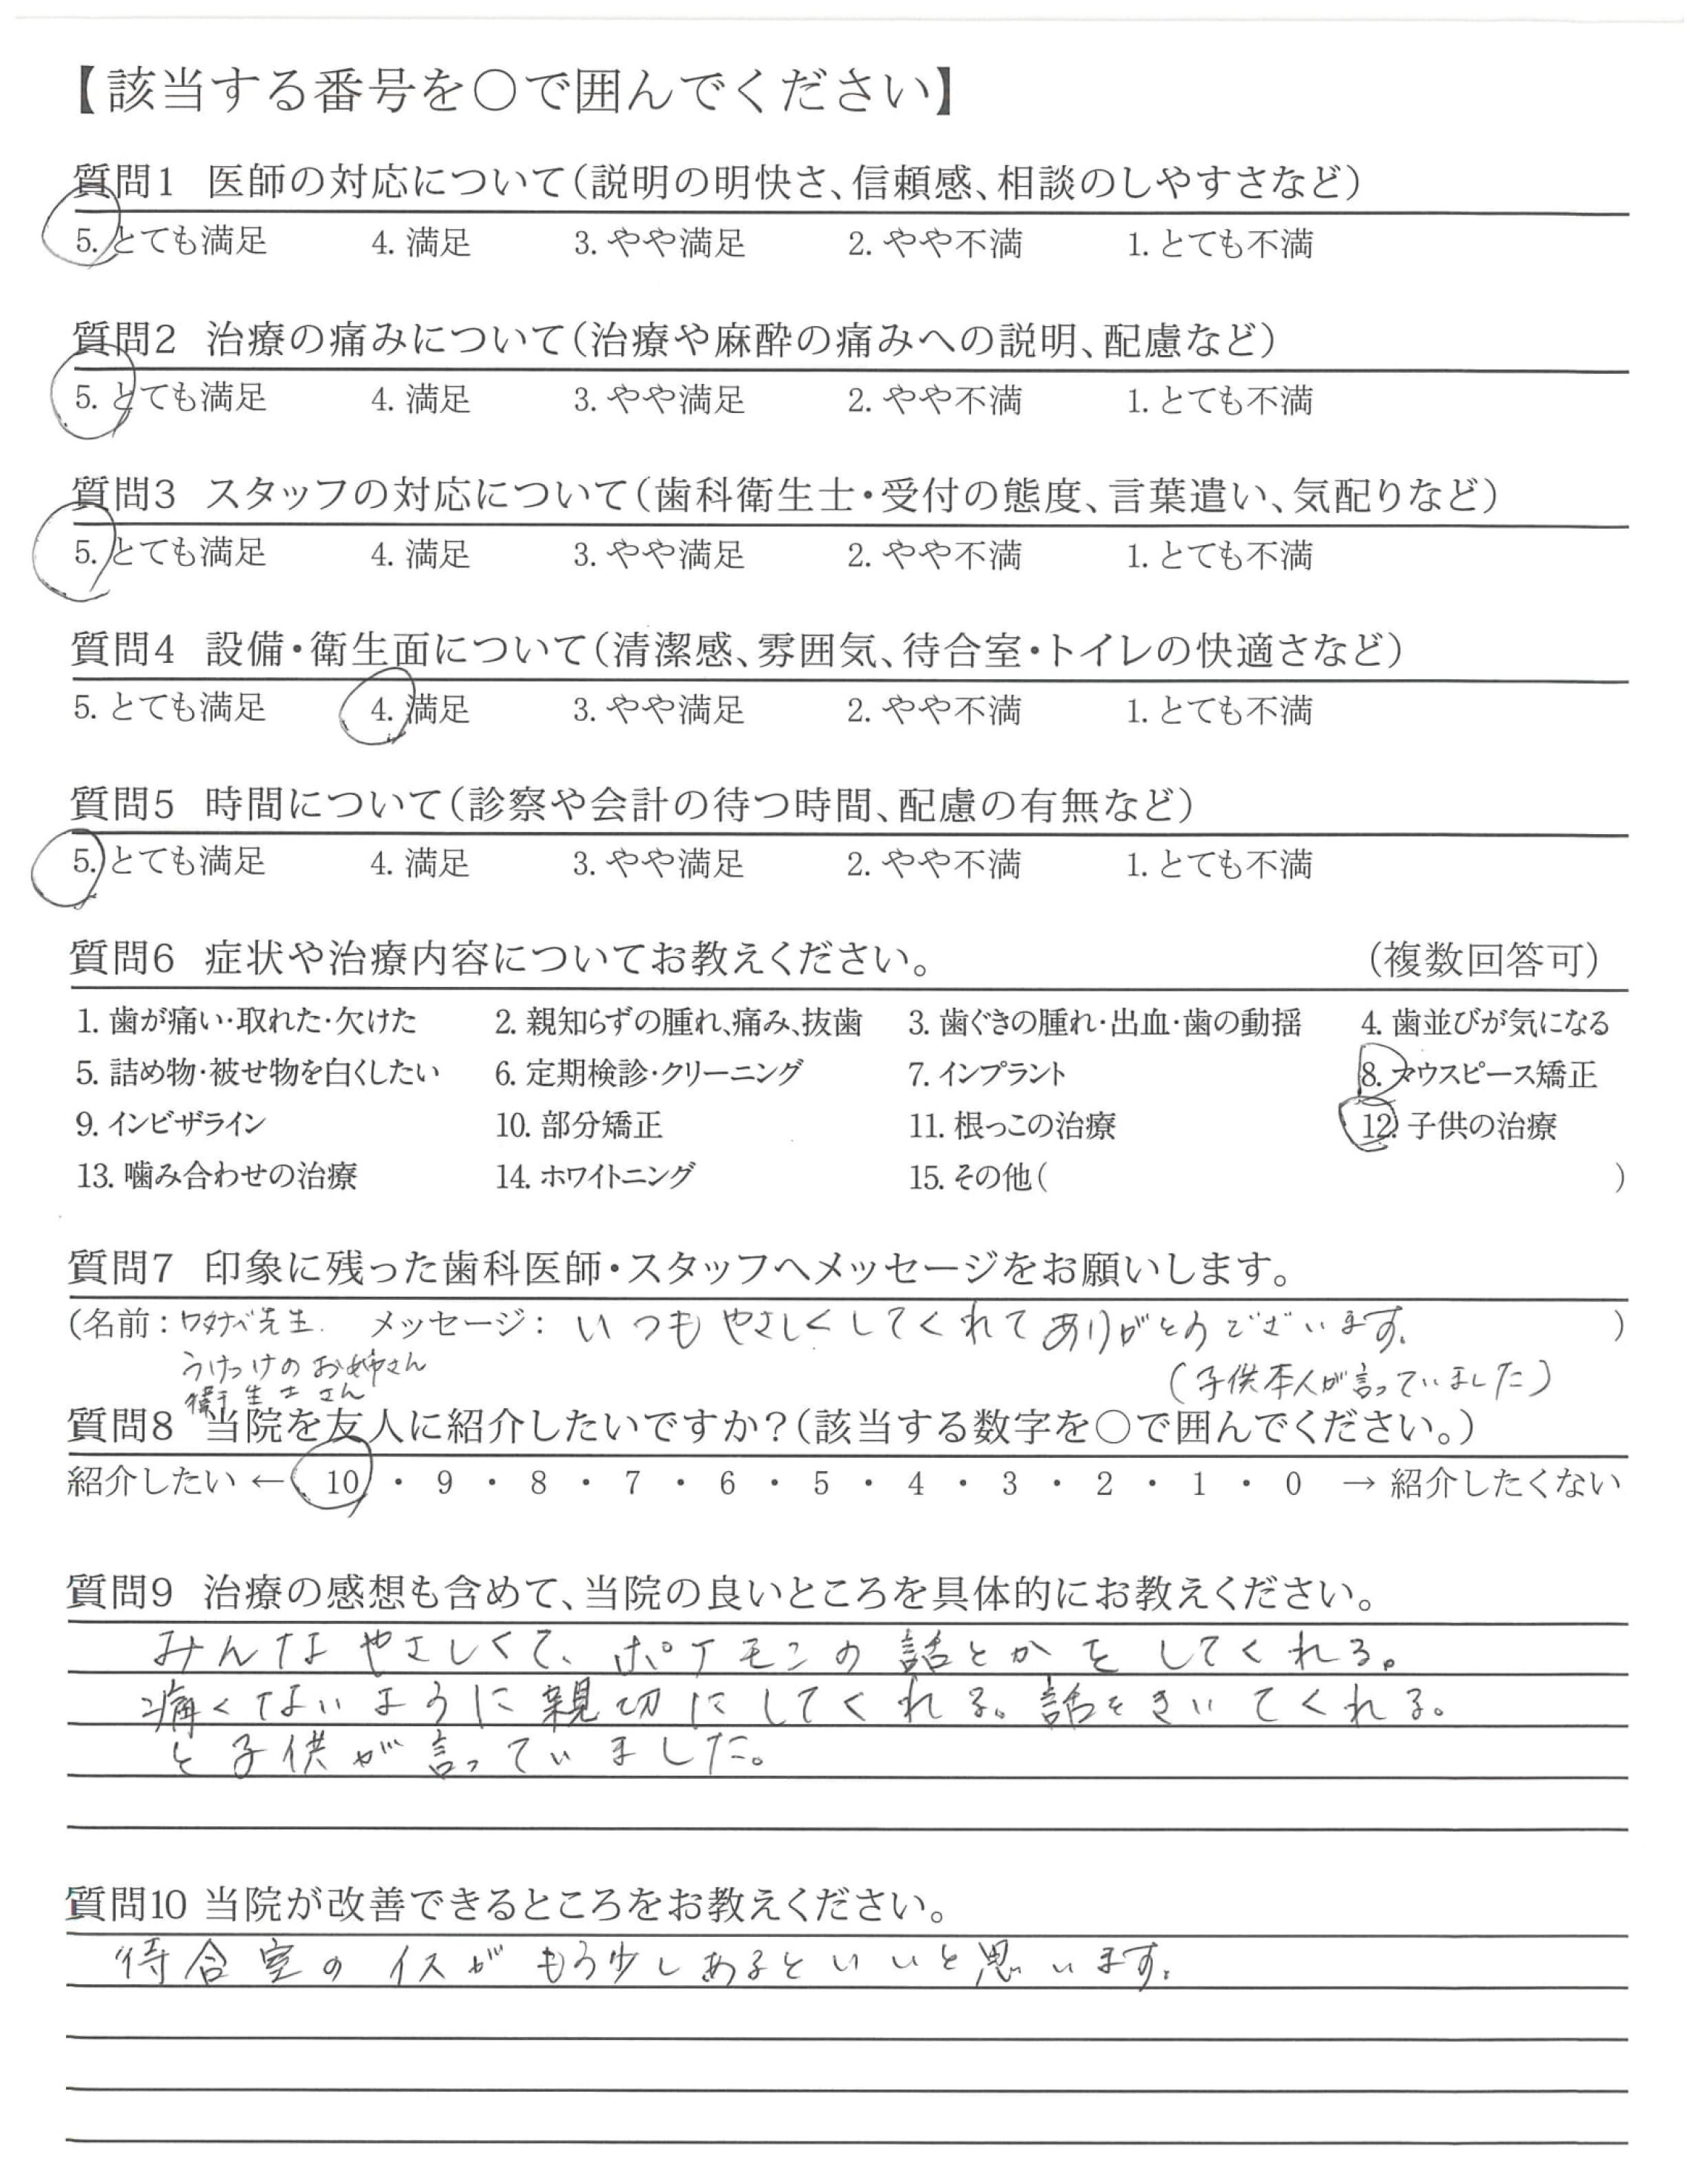 【該当する番号を○で囲んでください】
質問1 医師の対応について(説明の明快さ、信頼感、相談のしやすさなど)
5. とても満足 4. 満足 3. やや満足 2. やや不満 1. とても不満
質問2 治療の痛みについて(治療や麻酔の痛みへの説明、配慮など)
5. とても満足 4. 満足 3. やや満足 2. やや不満 1. とても不満
質問3 スタッフの対応について(歯科衛生士・受付の態度、言葉遣い、気配りなど)
5. とても満足 4. 満足 3. やや満足 2. やや不満 1. とても不満
質問4 設備・衛生面について(清潔感、雰囲気、待合室・トイレの快適さなど)
5. とても満足 4. 満足 3. やや満足 2. やや不満 1. とても不満
質問5 時間について(診察や会計の待つ時間、配慮の有無など)
5. とても満足 4. 満足 3. やや満足 2. やや不満 1. とても不満
質問6 症状や治療内容についてお教えください。 (複数回答可)
1. 歯が痛い・取れた・欠けた 2. 親知らずの腫れ、痛み、抜歯 3. 歯ぐきの腫れ・出血・歯の動揺 4. 歯並びが気になる
5. 詰め物・被せ物を白くしたい 6. 定期検診・クリーニング 7. インプラント 8. マウスピース矯正
9. インビザライン 10. 部分矯正 11. 根っこの治療 12. 子供の治療
13. 噛み合わせの治療 14. ホワイトニング 15. その他( )
質問7 印象に残った歯科医師・スタッフへメッセージをお願いします。
(名前：ワタナベ先生. メッセージ：いつもやさしくしてくれてありがとうございます。 )
うけつけのお姉さん
(子供本人が言っていました)
衛生士さん
質問8 当院を友人に紹介したいですか？(該当する数字を○で囲んでください。)
紹介したい ← 10 ・ 9 ・ 8 ・ 7 ・ 6 ・ 5 ・ 4 ・ 3 ・ 2 ・ 1 ・ 0 → 紹介したくない
質問9 治療の感想も含めて、当院の良いところを具体的にお教えください。
みんなやさしくて、ポケモンの話とかをしてくれる。
痛くてないように親切にしてくれる。話をきいてくれる。
と子供が言っていました。
質問10 当院が改善できるところをお教えください。
待合室のイスがもう少しあるといいと思います。